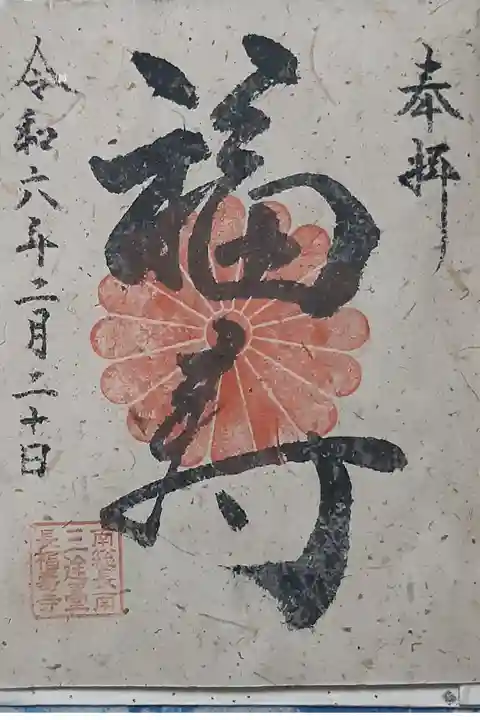 奉拝
福寿
令和六年二月二十日
南総長南
三途臺
長福寿寺